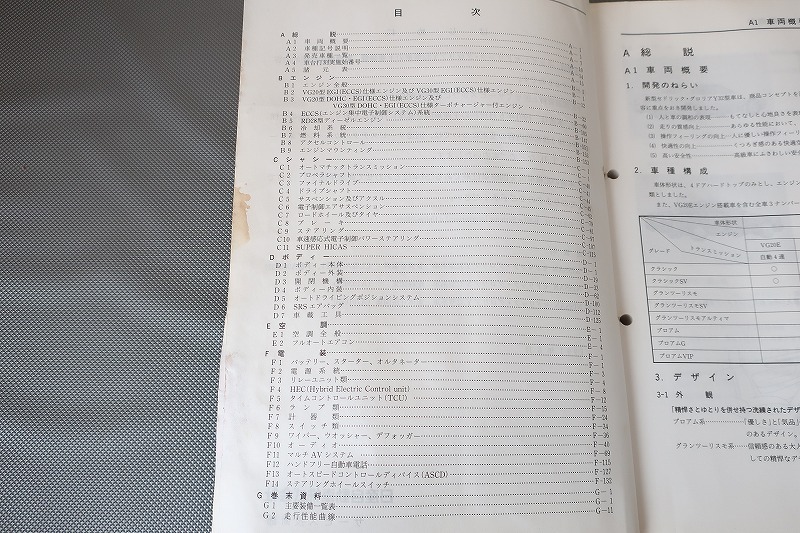 目 次
A 総 説
A 1 車 両 概 要
A 2 車種記号説明
A 3 発売車種一覧
A 4 車台打刻実施始番号
A 5 諸 元 表
B エンジン
B 1 エンジン全般
B 2 VG20型EGI(ECCS)仕様エンジン及びVG30型EGI(ECCS)仕様エンジン
B 3 VG20型DOHC・EGI(ECCS)仕様エンジン及び
VG30型DOHC・EGI(ECCS)仕様ターボチャージャー付エンジン
B 4 ECCS(エンジン集中電子制御システム)系統
B 5 RD28型ディーゼルエンジン
B 6 冷 却 系 統
B 7 燃 料 系 統
B 8 アクセルコントロール
B 9 エンジンマウンティング
C シャシー
C 1 オートマチックトランスミッション
C 2 プロペラシャフト
C 3 ファイナルドライブ
C 4 ドライブシャフト
C 5 サスペンション及びアクスル
C 6 電子制御エアサスペンション
C 7 ロードホイール及びタイヤ
C 8 ブ レ ー キ
C 9 ステアリング
C10 車速感応式電子制御パワーステアリング
C11 SUPER HICAS
D ボディー
D 1 ボディー本体
D 2 ボディー外装
D 3 開 閉 機 構
D 4 ボディー内装
D 5 オートドライビングポジションシステム
D 6 SRSエアバッグ
D 7 車 載 工 具
E 空 調 E－1
E 1 空 調 全 般 E－1
E 2 フルオートエアコン E－4
F 電 装 F－1
F 1 バッテリー、スターター、オルタネーター F－1
F 2 電 源 系 統 F－3
F 3 リレーユニット類
F 4 HEC(Hybrid Electric Control unit) F－8
F 5 タイムコントロールユニット(TCU) F－12
F 6 ラ ン プ 類 F－15
F 7 計 器 類 F－24
F 8 スイッチ類 F－34
F 9 ワイパー、ウオッシャー、デフォッガー F－36
F10 オ ー デ ィ オ F－40
F11 マルチAVシステム F－69
F12 ハンドフリー自動車電話 F－115
F13 オートスピードコントロールディバイス(ASCD) F－127
F14 ステアリングホイールスイッチ F－132
G 巻 末 資 料 G－1
G 1 主要装備一覧表 G－1
G 2 走行性能曲線 G－11
A1 車両概
A 総 説
A1 車 両 概 要
1. 開発のねらい
新型セドリック・グロリアY32型車は、商品コンセプトを
容に重点をおき開発しました。
(1) 人と車の調和の表現……もてなしと心地良さを表
(2) 走りの質感向上……あらゆる性能において、
(3) 操作フィーリングの向上…人に優しい操作フィー
(4) 快適性の向上……くつろぎ感のある快適な
(5) 高い安全性……高級車にふさわしい安全
2. 車 種 構 成
車体形状は、4ドアハードトップのみとし、エンジン
類としました。
また、VG20Eエンジン搭載車を含む全車3ナンバー
車体形状
エンジン
グレード トランスミッション
VG20E
自動4速
クラシック ○
クラシックSV ○
グランツーリスモ
グランツーリスモSV
グランツーリスモアルティマ
ブロアム
ブロアムG
ブロアムVIP
3. デ ザ イ ン
3-1 外 観
「精悍さとゆとりを併せ持つ洗練されたデザ
ブロアム系……「優しさ」と「気品」
のあるデザイン。
グランツーリスモ系……信頼感のある大人
して精悍なデ